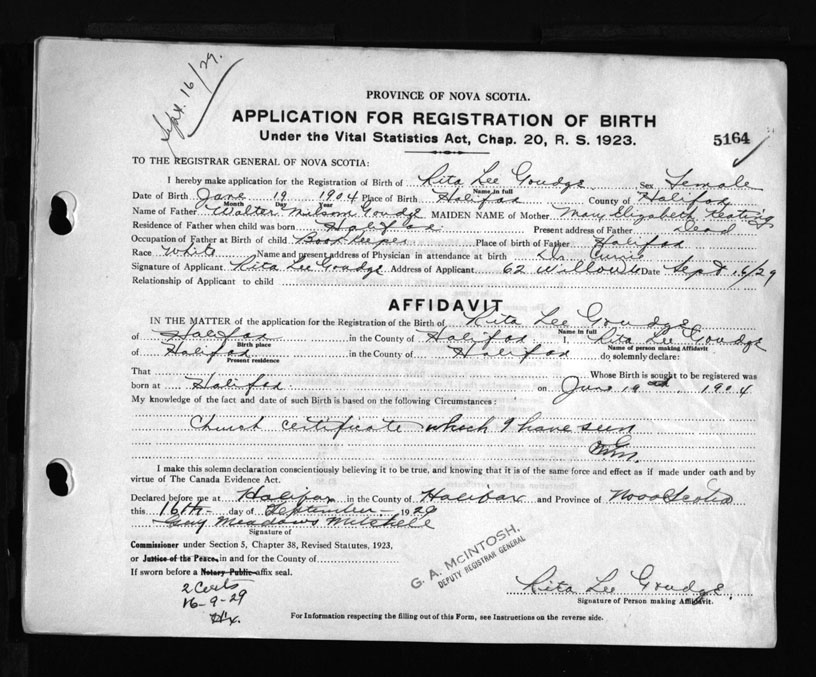 Sept. 16/29.
PROVINCE OF NOVA SCOTIA.
APPLICATION FOR REGISTRATION OF BIRTH
Under the Vital Statistics Act, Chap. 20, R. S. 1923.
5164
TO THE REGISTRAR GENERAL OF NOVA SCOTIA:
I hereby make application for the Registration of Birth of Rita Lee Goudge Sex Female
Name in full
Date of Birth June 19 1904 Place of Birth Halifax County of Halifax
Month Day Year
Name of Father Walter Goudge MAIDEN NAME of Mother Mary Elizabeth Keating
Residence of Father when child was born Halifax Present address of Father Dead
Occupation of Father at Birth of child Book Keeper Place of birth of Father Halifax
Race White Name and present address of Physician in attendance at birth Dr. Currie
Signature of Applicant Rita Lee Goudge Address of Applicant 62 Willow St Date Sept 16/29
Relationship of Applicant to child
AFFIDAVIT
IN THE MATTER of the application for the Registration of the Birth of Rita Lee Goudge
Name in full
of Halifax in the County of Halifax I, Rita Lee Goudge
Birth place Name of person making Affidavit
of Halifax in the County of Halifax do solemnly declare:
Present residence
That Whose Birth is sought to be registered was
born at Halifax. on June 19th, 1904
My knowledge of the fact and date of such Birth is based on the following Circumstances:
Church certificate which I have seen
I make this solemn declaration conscientiously believing it to be true, and knowing that it is of the same force and effect as if made under oath and by
virtue of The Canada Evidence Act.
Declared before me at Halifax in the County of Halifax and Province of Nova Scotia
this 16th day of September 1929
Guy Meadows Mitchell
Signature of
Commissioner under Section 5, Chapter 38, Revised Statutes, 1923,
or Justice of the Peace, in and for the County of
If sworn before a Notary Public affix seal.
G. A. McINTOSH,
DEPUTY REGISTRAR GENERAL
2 Certs
16-9-29
Hx.
Rita Lee Goudge.
Signature of Person making Affidavit.
For Information respecting the filling out of this Form, see Instructions on the reverse side.